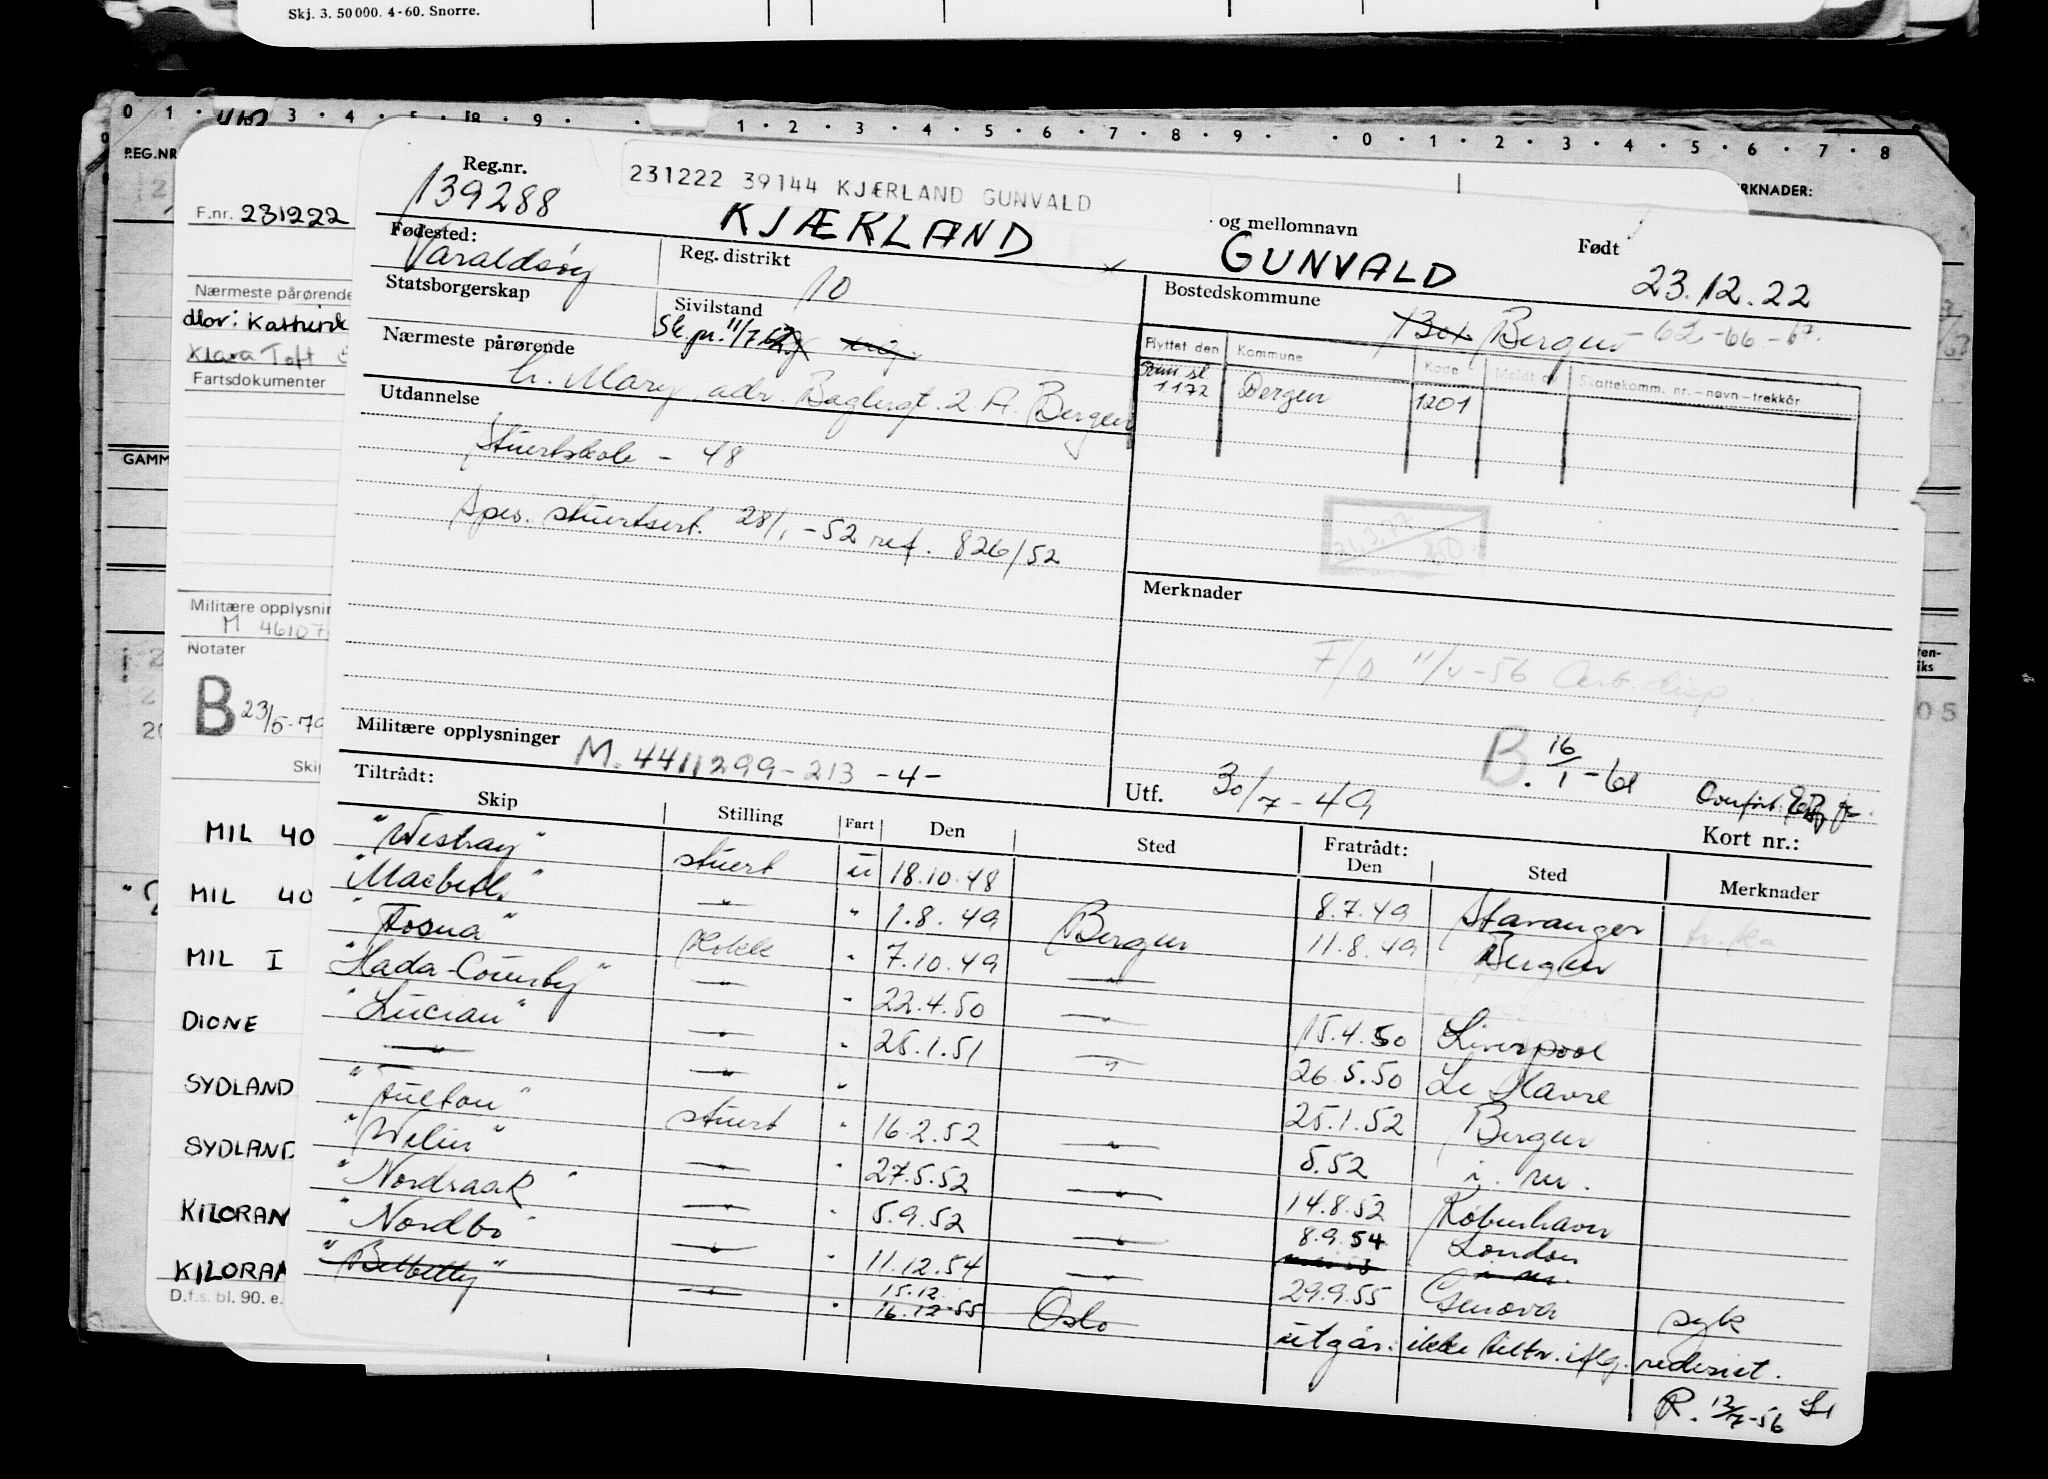 Skj. 3. 50 000. 4-60. Snorre.
0 1 3 4 5 8 9 1 2 3 4 5 6 7 8 9 0 1 2 3 4 5 6 7 8
REG.NR
F.nr. 231222
Nærmeste pårørende
Mor: Kathrine
Klara Toft
Fartsdokumenter
GAMM
Militære opplysnin
M 46107
Notater
B 23/5-79
Skip
MIL 40
MIL 40
MIL I
DIONE
SYDLAND
SYDLAND
KILORAN
KILORAN
D.f.s. bl. 90. e.
RKNADER:
Reg.nr.
139288
231222 39144 KJÆRLAND GUNVALD
KJÆRLAND
og mellomnavn
GUNVALD
Født
23.12.22
Fødested:
Varaldsøy
Reg. distrikt
10
Bostedskommune
Bergen - 62-66-67.
Statsborgerskap
Sivilstand
Sk. pr. 11/7
Flyttet den Kommune Kode Meldt av Skattekomm. nr. - navn - trekkår
1172 Bergen 1201
Nærmeste pårørende
h. Mary adr. Baglergt. 2 A. Bergen
Utdannelse
Stuertskole - 48
Spes. stuertsert. 28/1-52 ref. 826/52
Merknader
F/O 11/4-56 Arb.disp.
B. 16/1-61
Militære opplysninger M. 4411299-213 -4-
Utf. 30/7-49
Kort nr.:
Tiltrådt:
Skip Stilling Fart Den Sted Fratrådt: Den Sted Merknader
"Westray" stuert u 18.10.48 8.7.49 Stavanger
"Macbeth" " " 1.8.49 Bergen 11.8.49 Bergen
"Fosna" Kokk " 7.10.49 " 15.4.50 Liverpool
"Hada-County" " " 22.4.50 " 26.5.50 Le Havre
"Lucian" " " 28.1.51 " 25.1.52 Bergen
" " "
"Fulton" stuert " 16.2.52 " 5.52
"Welin" " " 27.5.52 " 14.8.52 København
"Nordraak" " " 5.9.52 " 8.9.54 London
"Nordbo" " " 11.12.54 " 29.9.55 Genova syk
"Belbetty" " " 15.12. 16.12.55 Oslo utgår: ikke tiltr. iflg. rederiet.
R. 12/4-56